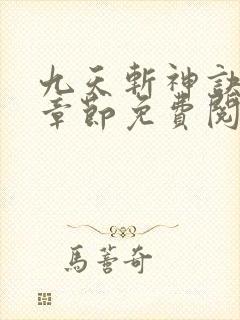 九天斬神訣
章節免費閱
馬蓍奇